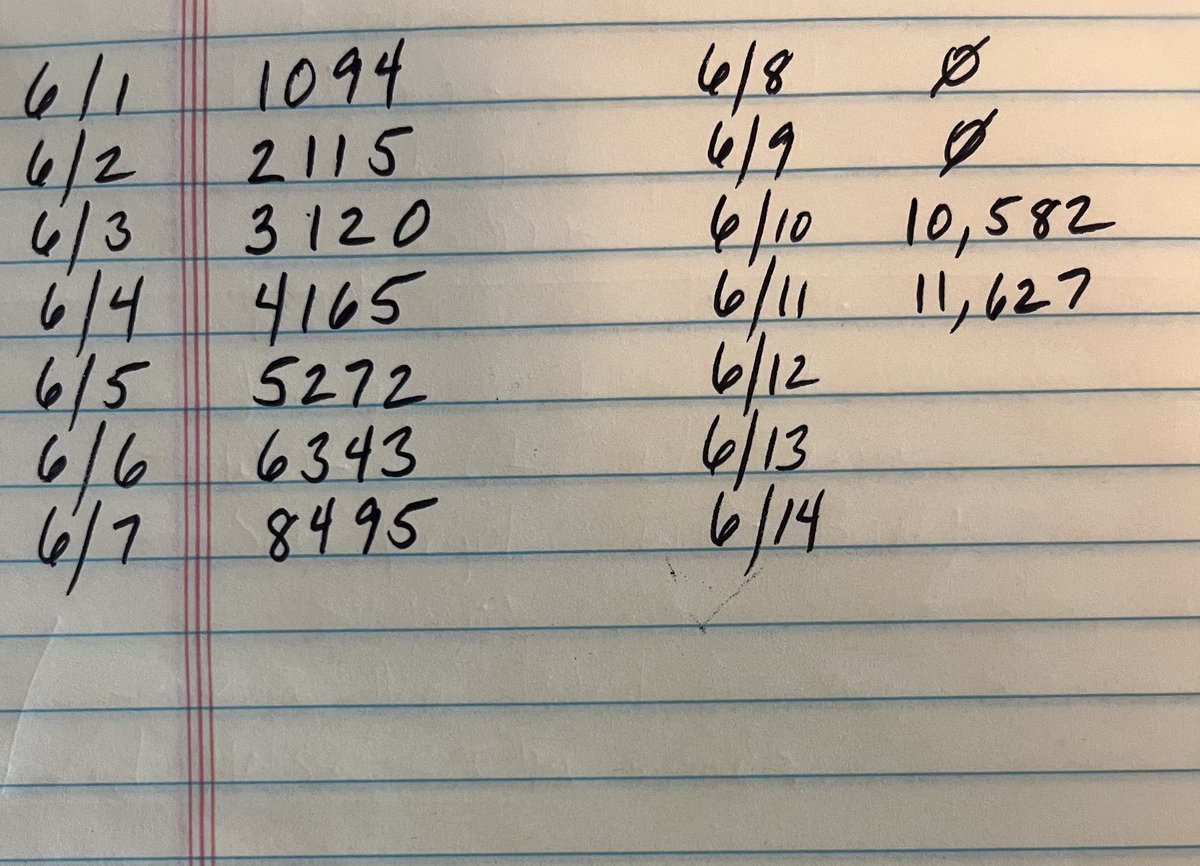 6/1 1094
6/2 2115
6/3 3120
6/4 4165
6/5 5272
6/6 6343
6/7 8495
6/8 Ø
6/9 Ø
6/10 10,582
6/11 11,627
6/12
6/13
6/14